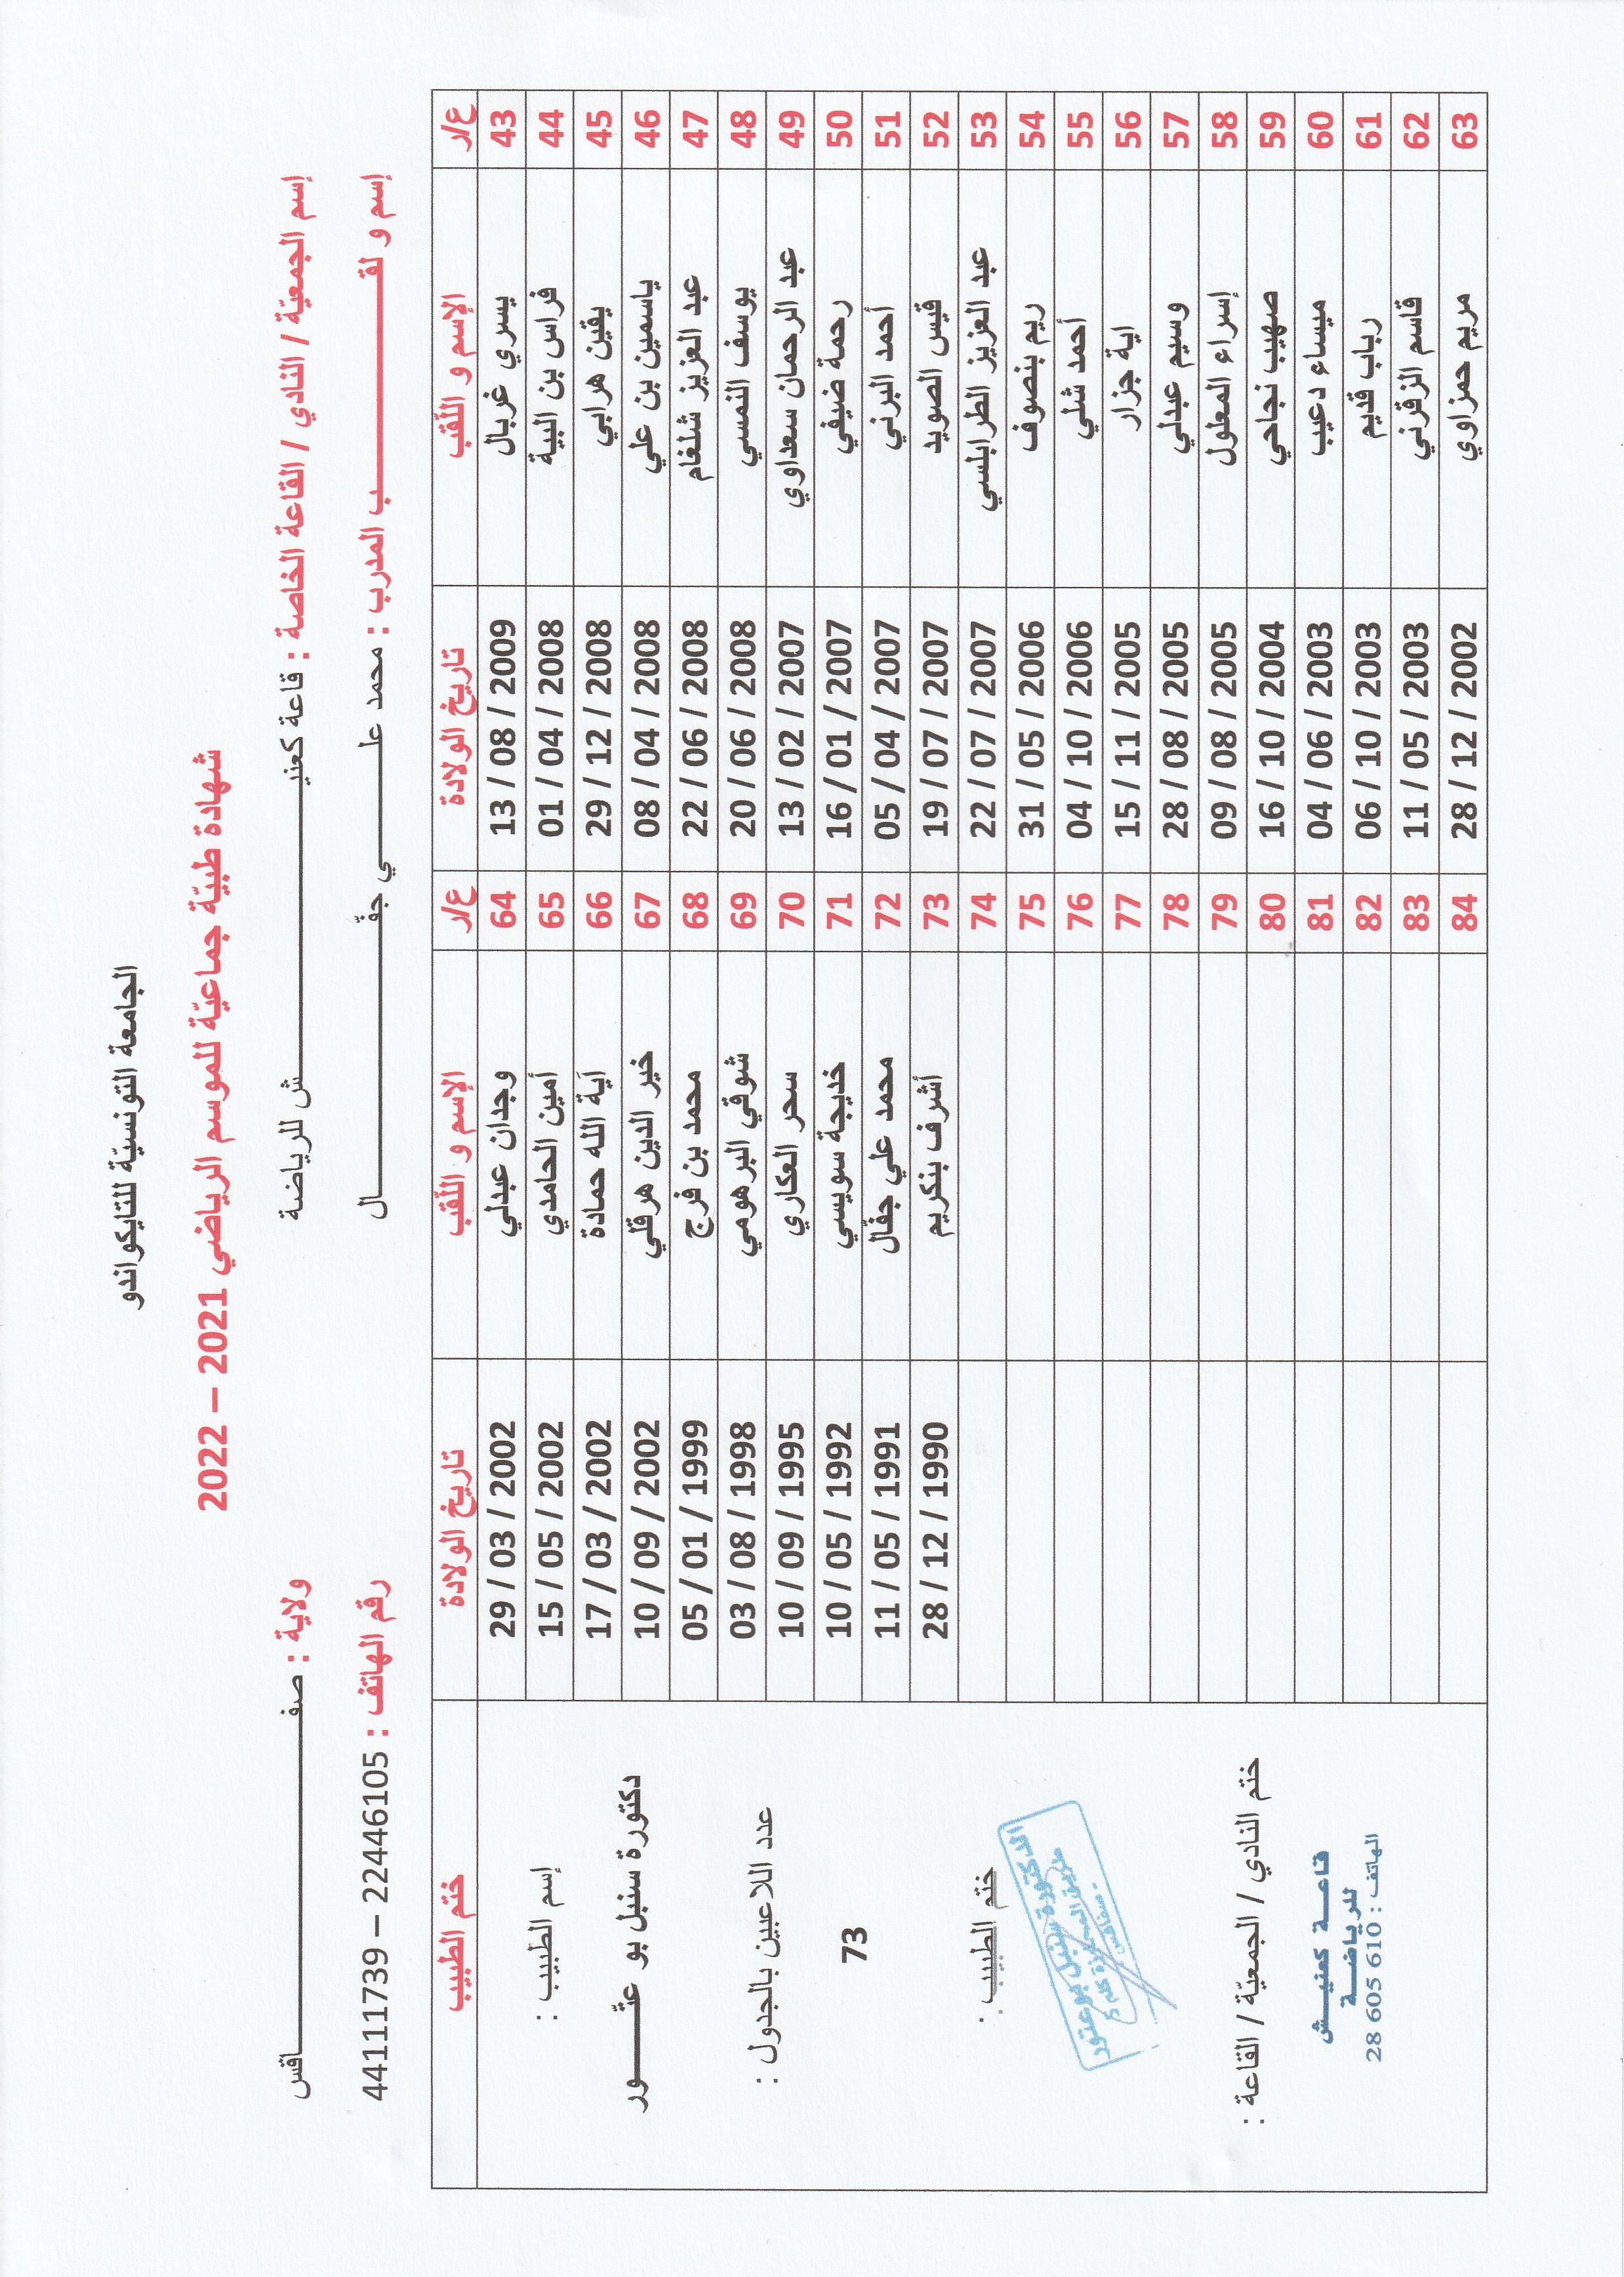 الجامعة التونسيّة للتايكواندو
شهادة طبيّة جماعيّة للموسم الرياضي 2021 – 2022
إسم الجمعيّة / النادي / القاعة الخاصة : قاعة كعنيـــــــش للرياضة ولاية : صفـــــــاقس
إسم و لقـــــــب المدرب : محمد علـــــــي جفّـــــــال رقم الهاتف : 22446105 – 44111739
ع/ر الإسم و اللّقب تاريخ الولادة ع/ر الإسم و اللّقب تاريخ الولادة ختم الطبيب
43 يسري غربال 13 / 08 / 2009 64 وجدان عبدلي 29 / 03 / 2002
44 فراس بن البية 01 / 04 / 2008 65 أمين الحامدي 15 / 05 / 2002
45 يقين هرابي 29 / 12 / 2008 66 آية الله حمادة 17 / 03 / 2002
46 ياسمين بن علي 08 / 04 / 2008 67 خير الدين هرقلي 10 / 09 / 2002
47 عبد العزيز شلغام 22 / 06 / 2008 68 محمد بن فرج 05 / 01 / 1999
48 يوسف النمسي 20 / 06 / 2008 69 شوقي البرهومي 03 / 08 / 1998
49 عبد الرحمان سعداوي 13 / 02 / 2007 70 سحر العكاري 10 / 09 / 1995
50 رحمة ضيفي 16 / 01 / 2007 71 خديجة سويسي 10 / 05 / 1992
51 أحمد البرني 05 / 04 / 2007 72 محمد علي جفّال 11 / 05 / 1991
52 قيس الصويد 19 / 07 / 2007 73 أشرف بنكريم 28 / 12 / 1990
53 عبد العزيز الطرابلسي 22 / 07 / 2007 74
54 ريم بنصوف 31 / 05 / 2006 75
55 أحمد شلي 04 / 10 / 2006 76
56 اية جزار 15 / 11 / 2005 77
57 وسيم عبدلي 28 / 08 / 2005 78
58 إسراء المعلول 09 / 08 / 2005 79
59 صهيب نجاحي 16 / 10 / 2004 80
60 ميساء دعيب 04 / 06 / 2003 81
61 رباب قديم 06 / 10 / 2003 82
62 قاسم الزقرني 11 / 05 / 2003 83
63 مريم حمزاوي 28 / 12 / 2002 84
إسم الطبيب :
دكتورة سنبل بو عتّـــــور
عدد اللاعبين بالجدول :
73
ختم الطبيب :
الدكتورة سنبل بوعتور
صفاقس
ختم النادي / الجمعيّة / القاعة :
قاعـــة كعنيـــش
للرياضـــة
الهاتف : 28 605 610